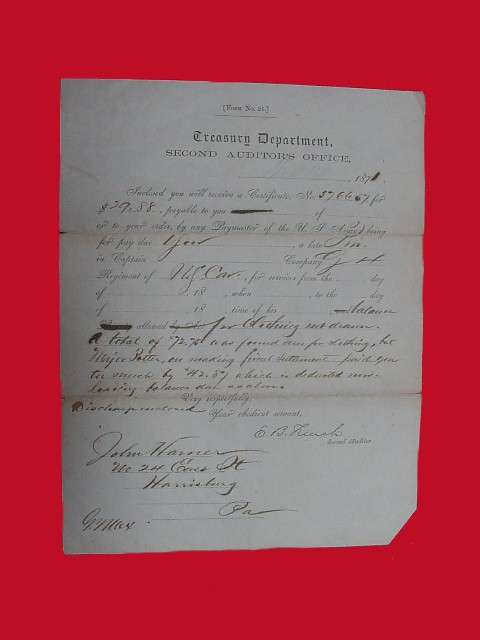 [Form No. 21.]
Treasury Department,
SECOND AUDITOR'S OFFICE,
, 1871
Inclosed you will receive a Certificate, No. 576667, for
$29.88, payable to you of
or to your order, by any Paymaster of the U. S. Army, being
for pay due You , a late Pvt.
in Captain Company G 4
Regiment of U.S. Cav., for services from the day
of 18 , when , to the day
of 18 , time of his balance
allowed for clothing not drawn.
A total of $72.75 was found due for clothing, but
Major Potter, on making final settlement paid you
too much by $42.87 which is deducted now
leaving balance due as above.
Very respectfully,
Discharge enclosed
Your obedient servant,
E. B. French
Second Auditor.
John Warner
No 24 East St
Harrisburg
Pa